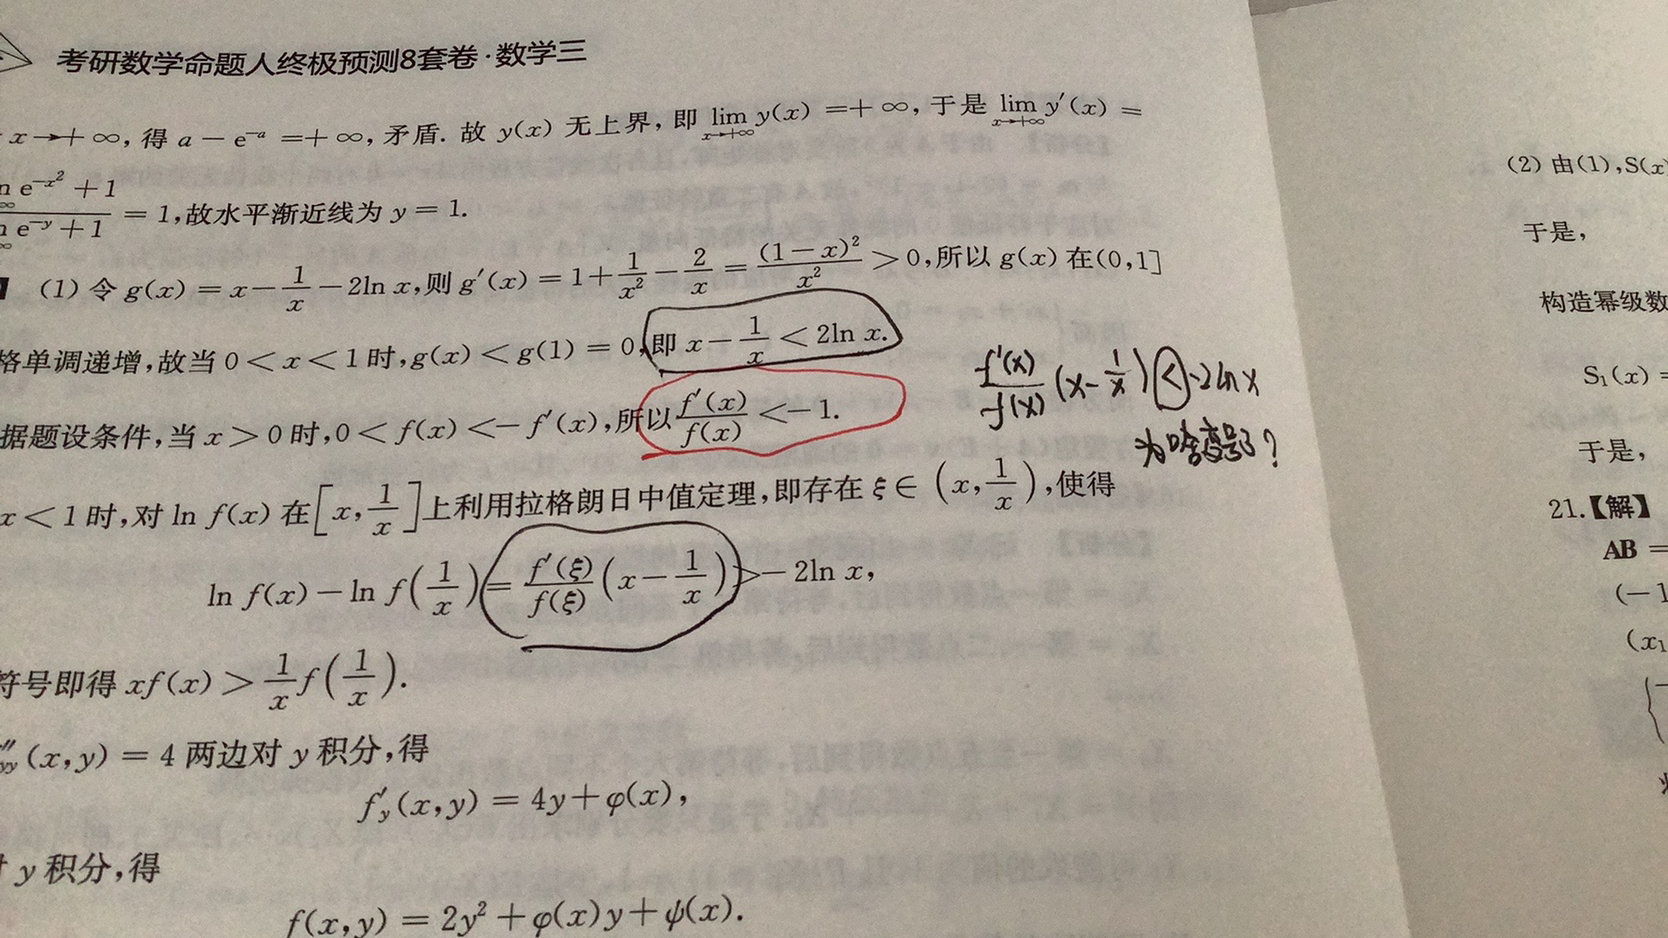 考研数学命题人终极预测8套卷·数学三
x→+∞,得 a－e^{-a}＝+∞,矛盾.故 y(x) 无上界,即 lim_{x→+∞} y(x)＝+∞,于是 lim_{x→+∞} y′(x)＝
e^{-x²}+1
e^{-y}+1
＝1,故水平渐近线为 y＝1.
(1) 令 g(x)＝x－1/x－2ln x,则 g′(x)＝1+1/x²－2/x＝(1－x)²/x²＞0,所以 g(x) 在(0,1]
格单调递增,故当 0＜x＜1 时,g(x)＜g(1)＝0,即 x－1/x＜2ln x.
据题设条件,当 x＞0 时,0＜f(x)＜－f′(x),所以 f′(x)/f(x)＜－1.
f′(x)/f(x) (x－1/x)＜-2ln x
为啥变号了?
x＜1 时,对 ln f(x) 在[x,1/x]上利用拉格朗日中值定理,即存在 ξ∈(x,1/x),使得
ln f(x)－ln f(1/x)＝f′(ξ)/f(ξ) (x－1/x)＞－2ln x,
符号即得 xf(x)＞1/x f(1/x).
″yy(x,y)＝4 两边对 y 积分,得
f′y(x,y)＝4y+φ(x),
y 积分,得
f(x,y)＝2y²+φ(x)y+ψ(x).
(2) 由(1),S(x
于是,
构造幂级数
S₁(x)＝
于是,
21.【解】
AB＝
(－1
(x₁